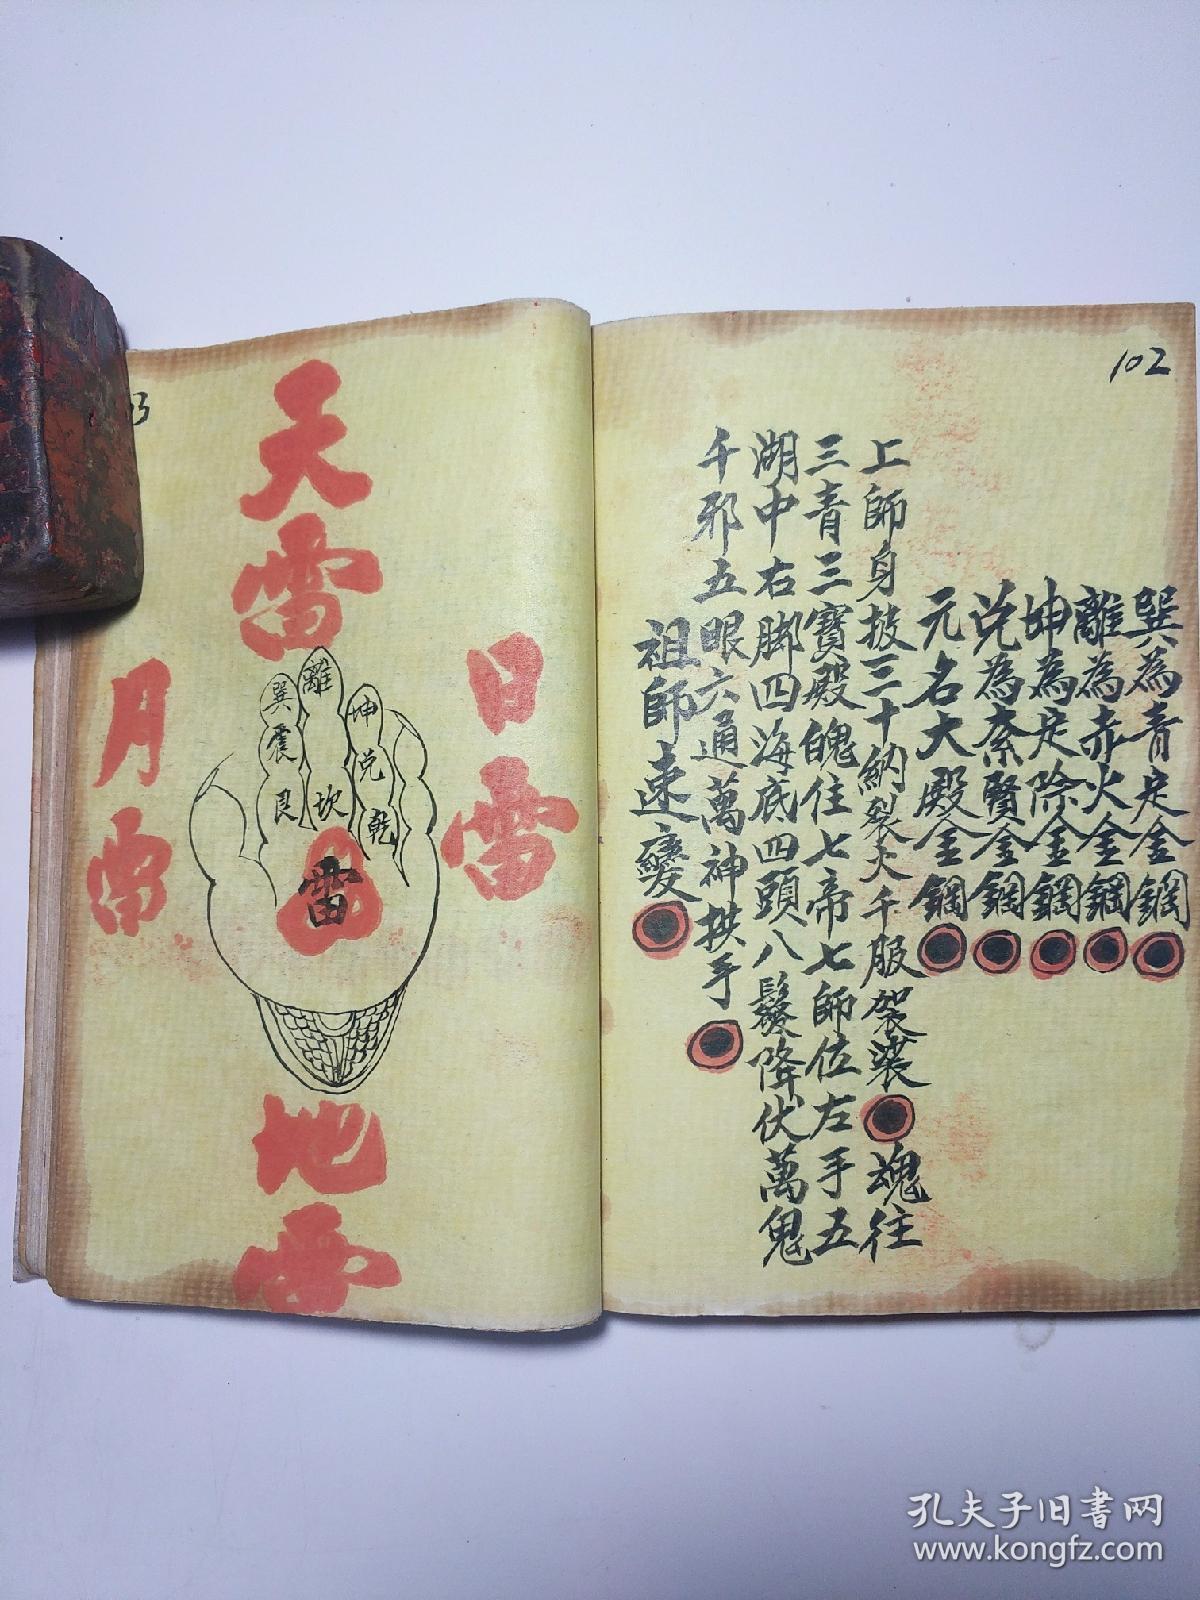 102
巽為青定金鋼
離為赤火金鋼
坤為定除金鋼
兑為柰賢金鋼
元名大殿金鋼
上師身披三十納裂大千服袈裟魂往
三青三寶殿魄住七帝七師位左手五
湖中右脚四海底四頭八髮降伏萬鬼
千邪五眼六通萬神拱手
祖師速變
天雷
日雷
月雷
地雷
離
巽
震
艮
坎
坤
兑
乾
雷
孔夫子旧书网
www.kongfz.com